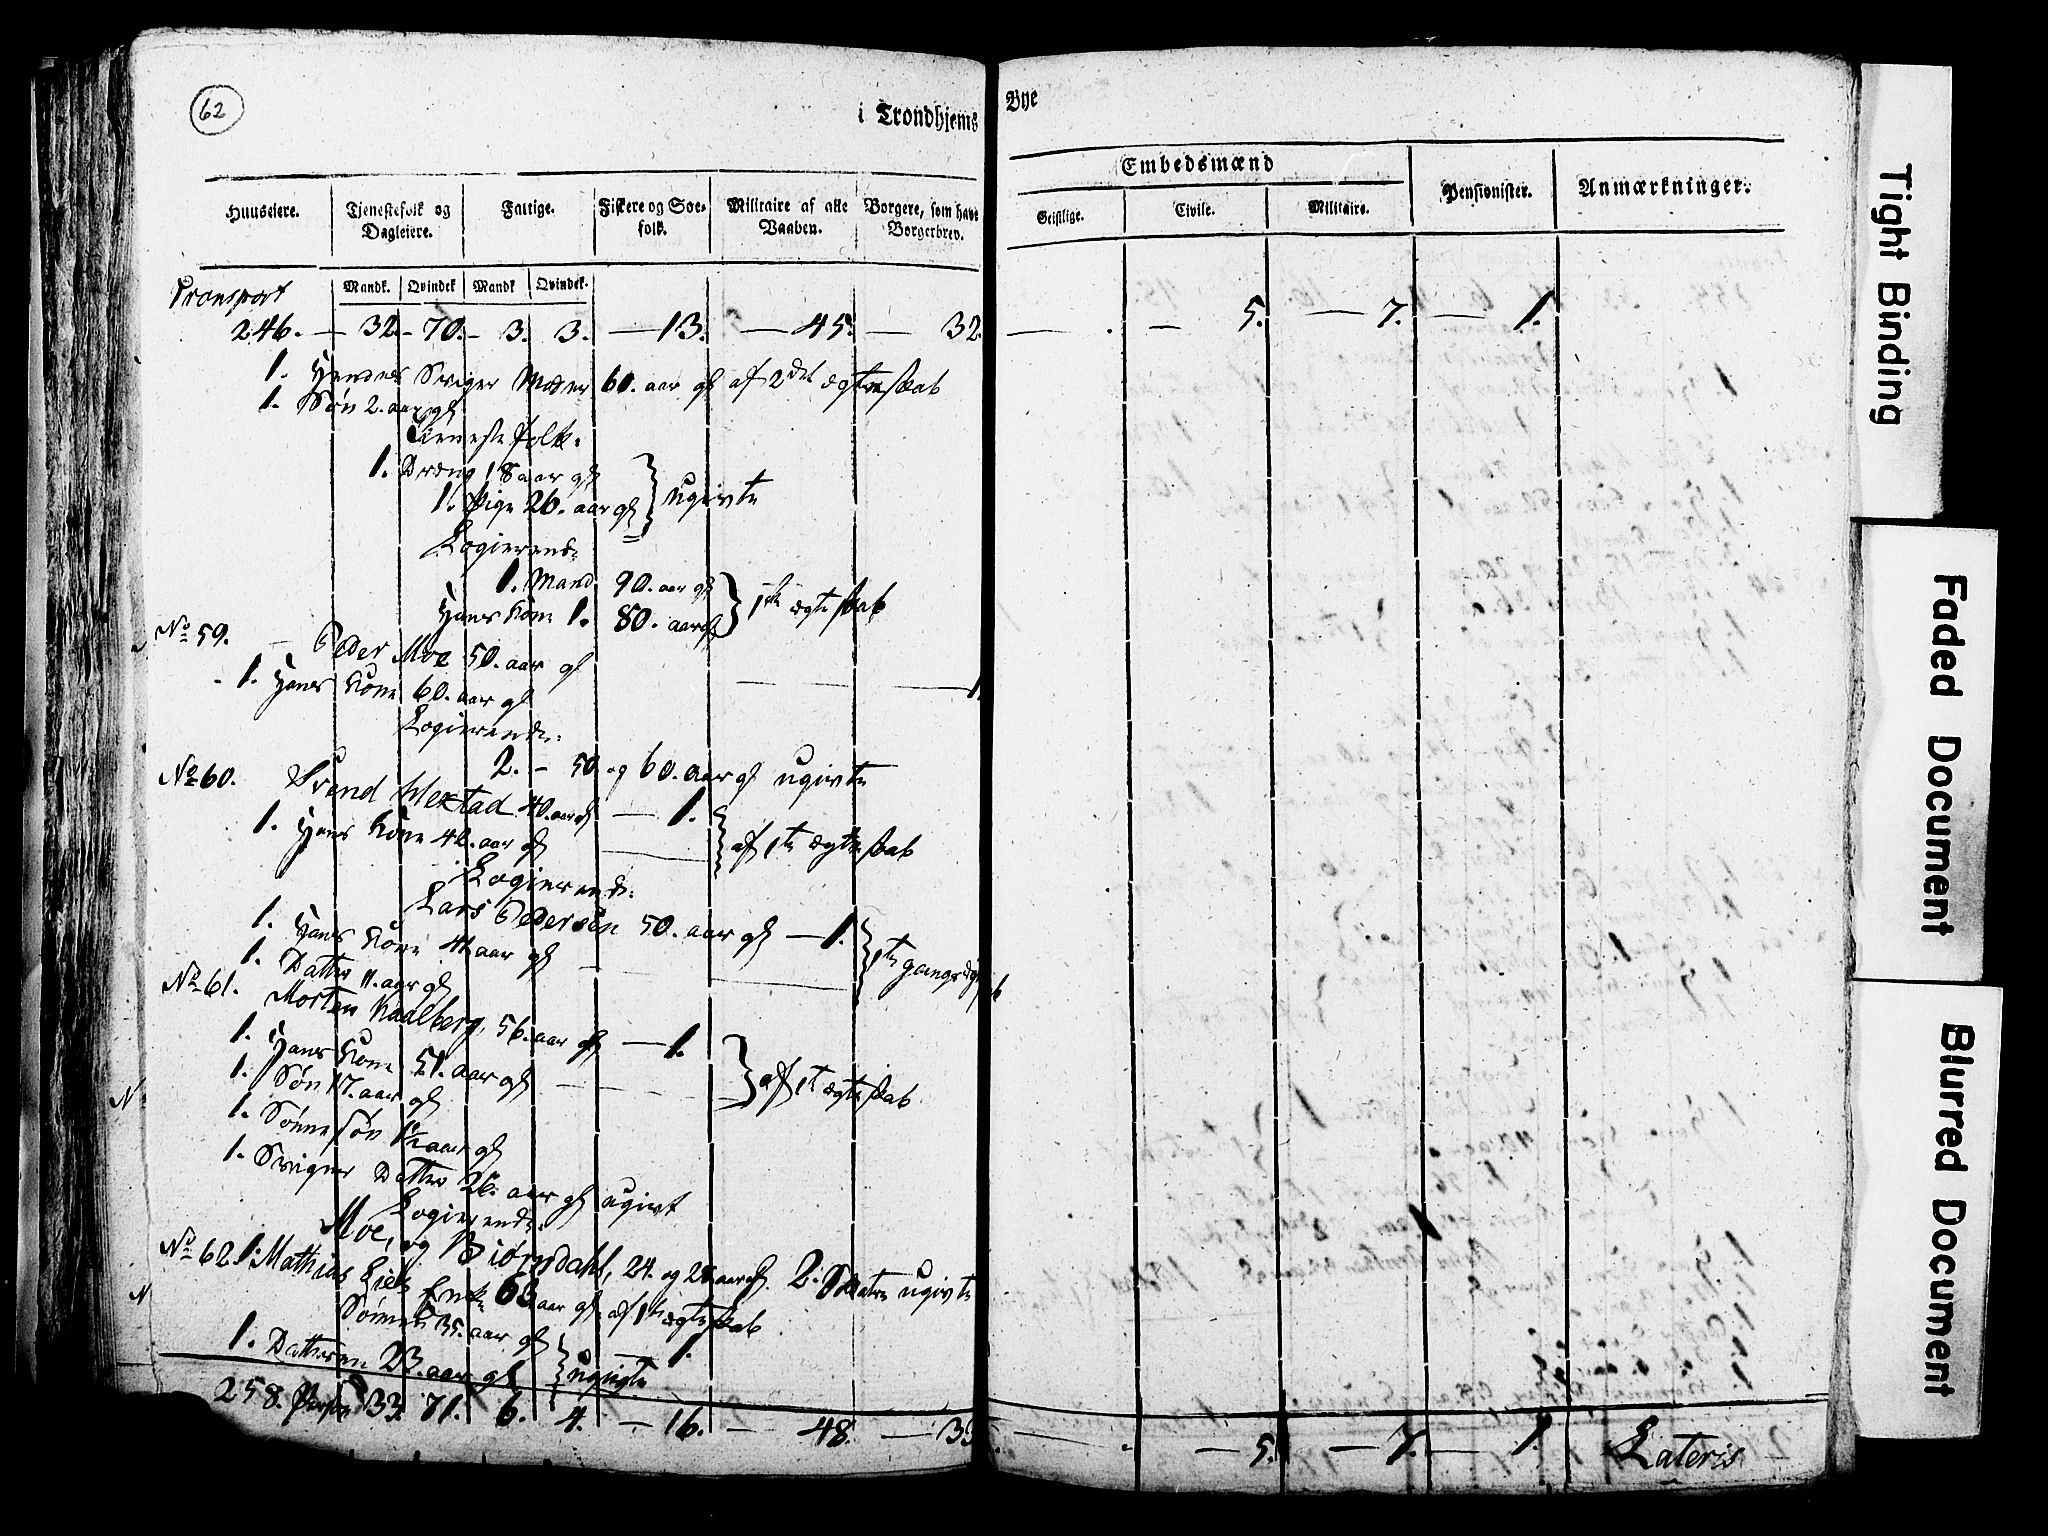 62
i Trondhjems Bye
Embedsmænd
Huuseiere. Tjenestefolk og Dagleiere. Fattige. Fiskere og Søefolk. Militaire af alle Vaaben. Borgere, som have Borgerbrev. Geistlige. Civile. Militaire. Pensionister. Anmærkninger.
Mandk. Qvindek Mandk Qvindek.
Transport
246. — 32. – 70. – 3. 3. — 13. — 45. — 32. — . — 5. — 7. — 1.
1. Sviger Moder 60. aar gl af 2det ægteskab
1. Søn 2. aar gl
Tieneste folk.
1. Dreng 18 aar gl
1. Pige 26. aar gl } ugivte
Logierende
1. Mand. 90. aar gl
Hans Kone 1. 80. aar gl } 1ste ægteskab
No 59. – Peder Moe 50. aar gl
1. Hans Kone 60. aar gl — — 1
Logierende:
2. – 50 og 60. aar gl ugivte
No 60. Svend 40. aar gl — 1.
1. Hans Kone 46. aar gl } af 1te ægteskab
Logierende:
Lars Pedersøn 50. aar gl — 1.
1. Hans Kone aar gl
1. Datter 11. aar gl
No 61. Morten Kaalberg, 56. aar gl — 1.
1. Hans Kone 51. aar gl
1. Søn 17. aar gl } af 1te ægteskab
1. Sønne søn 1½ aar gl
1. Sviger Datter 26. aar gl ugivt
Logierende.
Moe, og Biørnsdahl, 24. og 28 aar gl. 2. ugivte
No 62. 1. Mathias Enke 63 aar gl af 1te ægteskab
Sønnen 35. aar gl — 1.
1. Datteren 23. aar gl } ugivte
258. 33. 71. 6. 4. — 16. — 48. — 33 — . — 5. — 7. — 1. Lateris
Tight Binding
Faded Document
Blurred Document